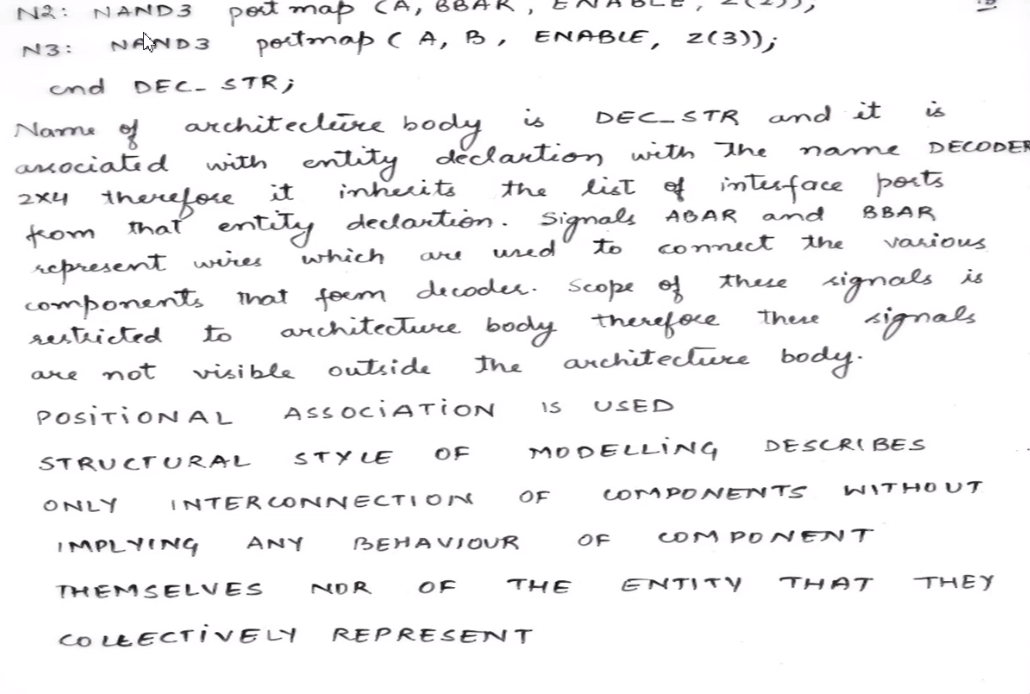 N2: NAND3 port map (A, BBAR, ENABLE, Z(2));
N3: NAND3 portmap ( A, B, ENABLE, Z(3));
end DEC_STR;
Name of architecture body is DEC_STR and it is
associated with entity declartion with the name DECODER
2x4 therefore it inherits the list of interface ports
from that entity declartion. Signals ABAR and BBAR
represent wires which are used to connect the various
components that form decoder. Scope of these signals is
restricted to architecture body therefore these signals
are not visible outside the architecture body.
POSITIONAL ASSOCIATION IS USED
STRUCTURAL STYLE OF MODELLING DESCRIBES
ONLY INTERCONNECTION OF COMPONENTS WITHOUT
IMPLYING ANY BEHAVIOUR OF COMPONENT
THEMSELVES NOR OF THE ENTITY THAT THEY
COLLECTIVELY REPRESENT